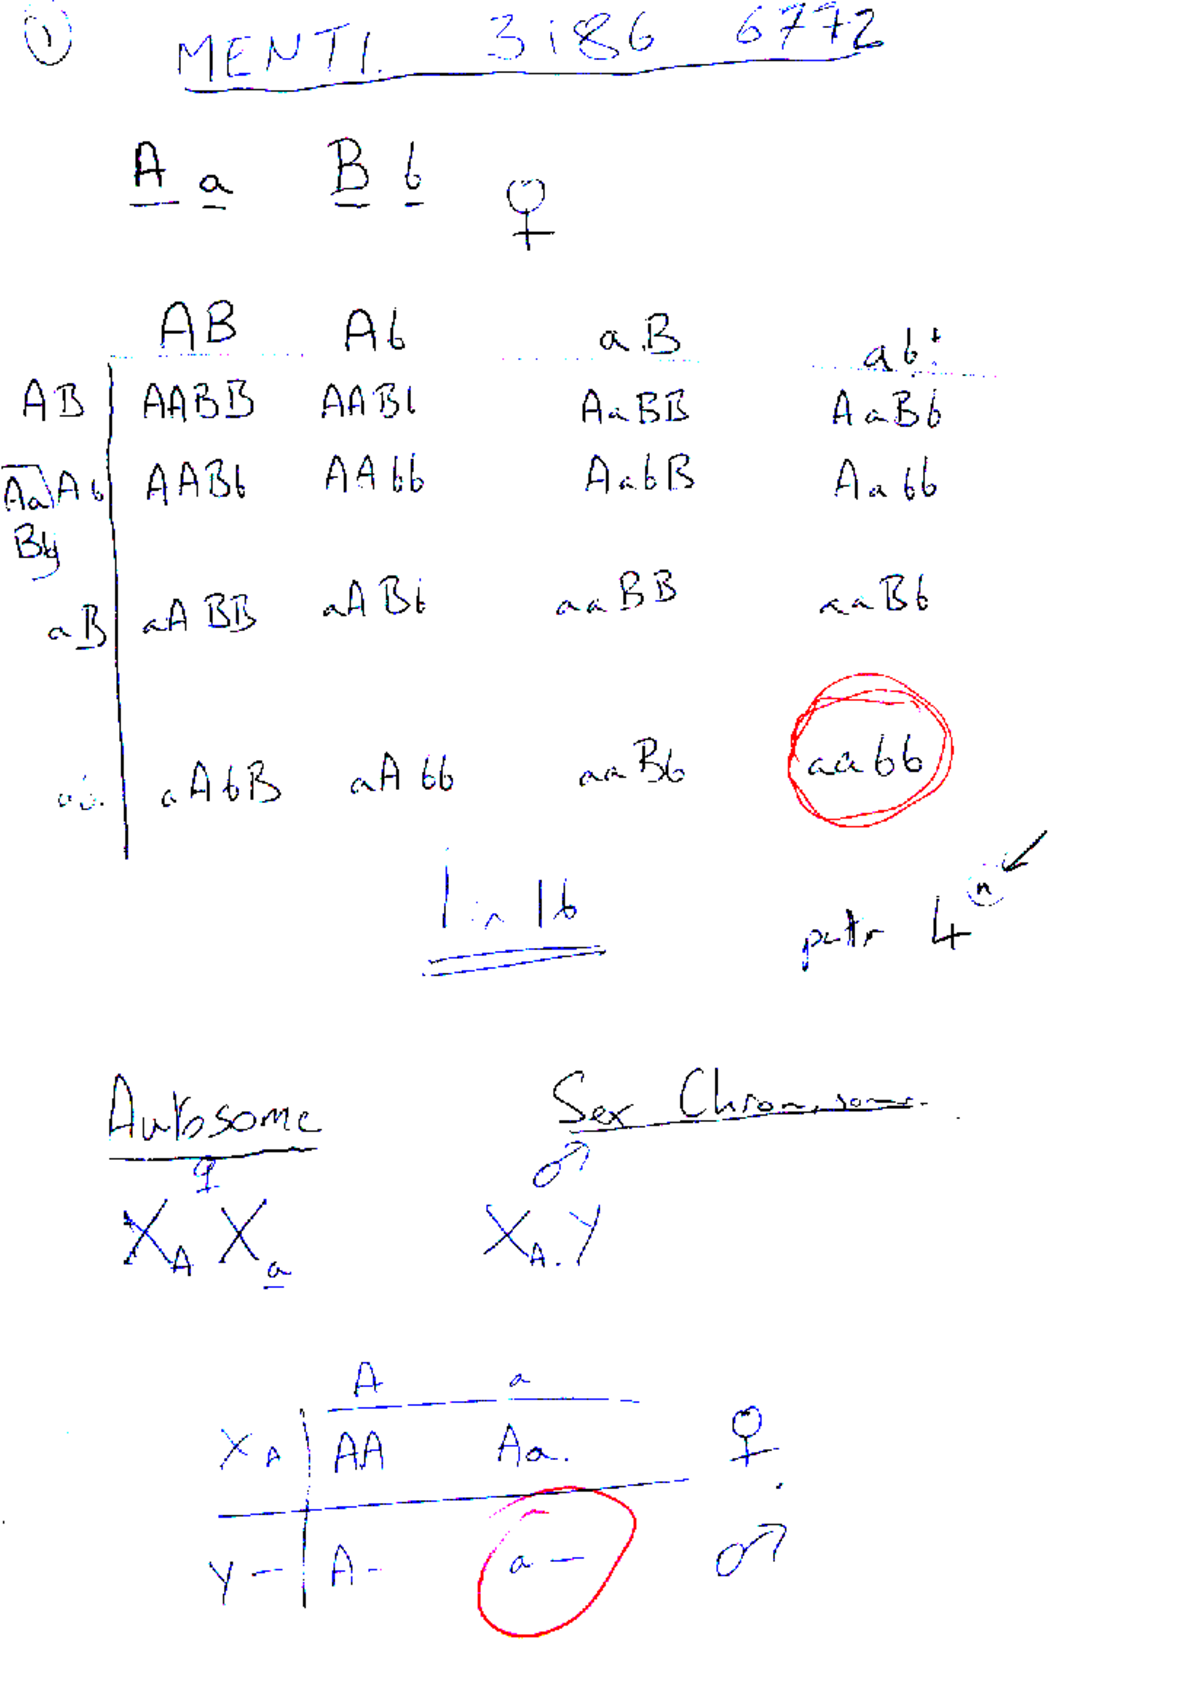 1
MENTI. 3186 6772
A a B b ♀
AB Ab aB ab
AB AABB AABb AaBB AaBb
Aa Ab AABb AAbb AabB Aabb
Bb
aB aABB aABb aaBB aaBb
aAbB aAbb aaBb aabb
1 in 16 4 n
Autosome Sex Chromosome.
♀ ♂
XA Xa XA. Y
A a
XA AA Aa. ♀
Y – A- a – ♂